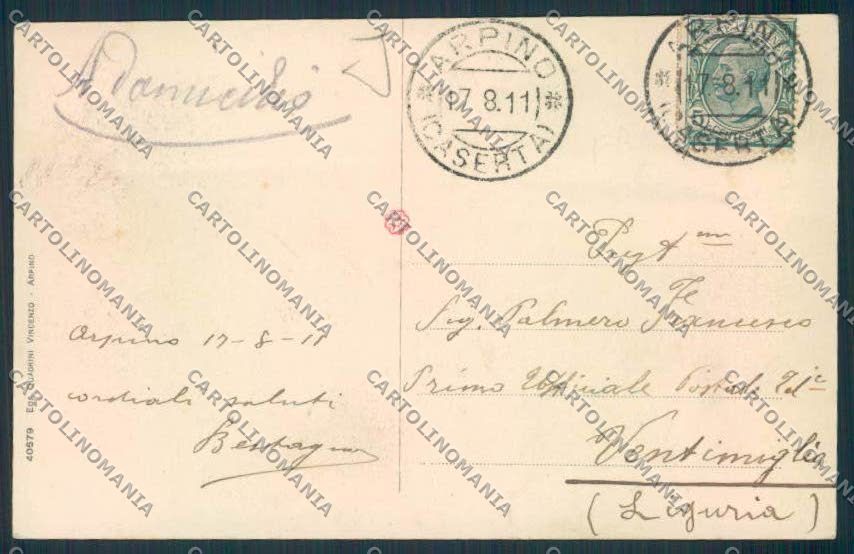 A Domicilio
ARPINO
17.8.11
(CASERTA)
ARPINO
17.8.11
(CASERTA)
Arpino 17-8-11
cordiali saluti
Sig. Palmero Francesco
Primo Ufficiale Postale
Ventimiglia
(Liguria)
40579 Ed. QUADRINI VINCENZO - ARPINO
CARTOLINOMANIA